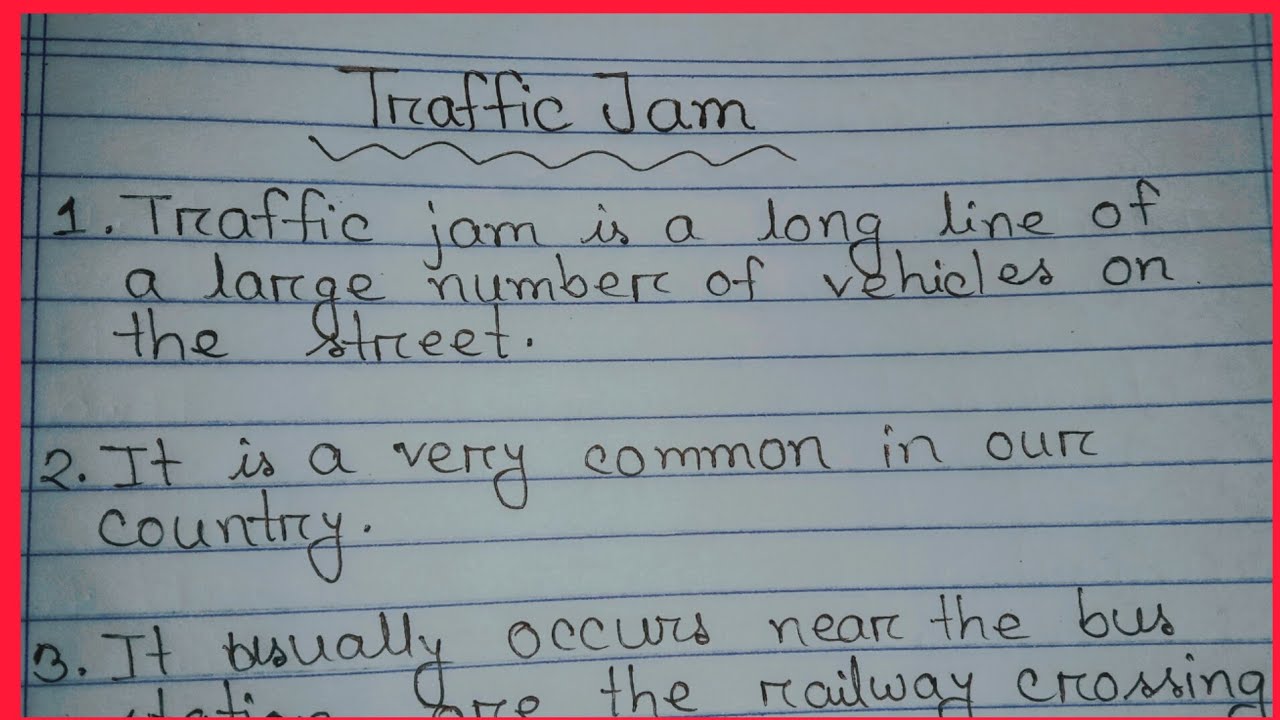 Traffic Jam
1. Traffic jam is a long line of
a large number of vehicles on
the street.
2. It is a very common in our
country.
3. It usually occurs near the bus
the railway crossing